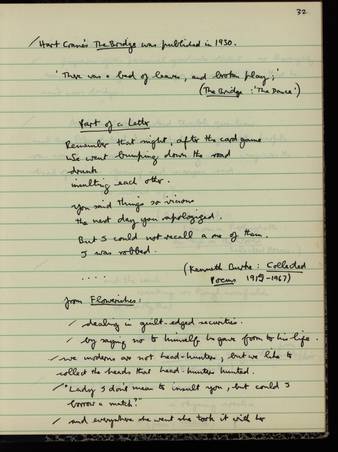 32
/ Hart Crane's The Bridge was published in 1930.
'There was a bed of leaves, and broken play;'
(The Bridge : 'The Dance')
Part of a Letter
Remember that night, after the card game
We went bumping down the road
drunk
insulting each other.
You said things so vicious
the next day you apologized.
But I could not recall a one of them.
I was robbed.
....
(Kenneth Burke : Collected
Poems 1915-1967)
from Flowerishes :
/ dealing in guilt-edged securities.
/ by saying no to himself he gave form to his life.
/ we moderns are not head-hunters, but we like to
collect the heads that head-hunters hunted.
/ "Lady I don't mean to insult you, but could I
borrow a match?"
/ and everywhere she went she took it with her